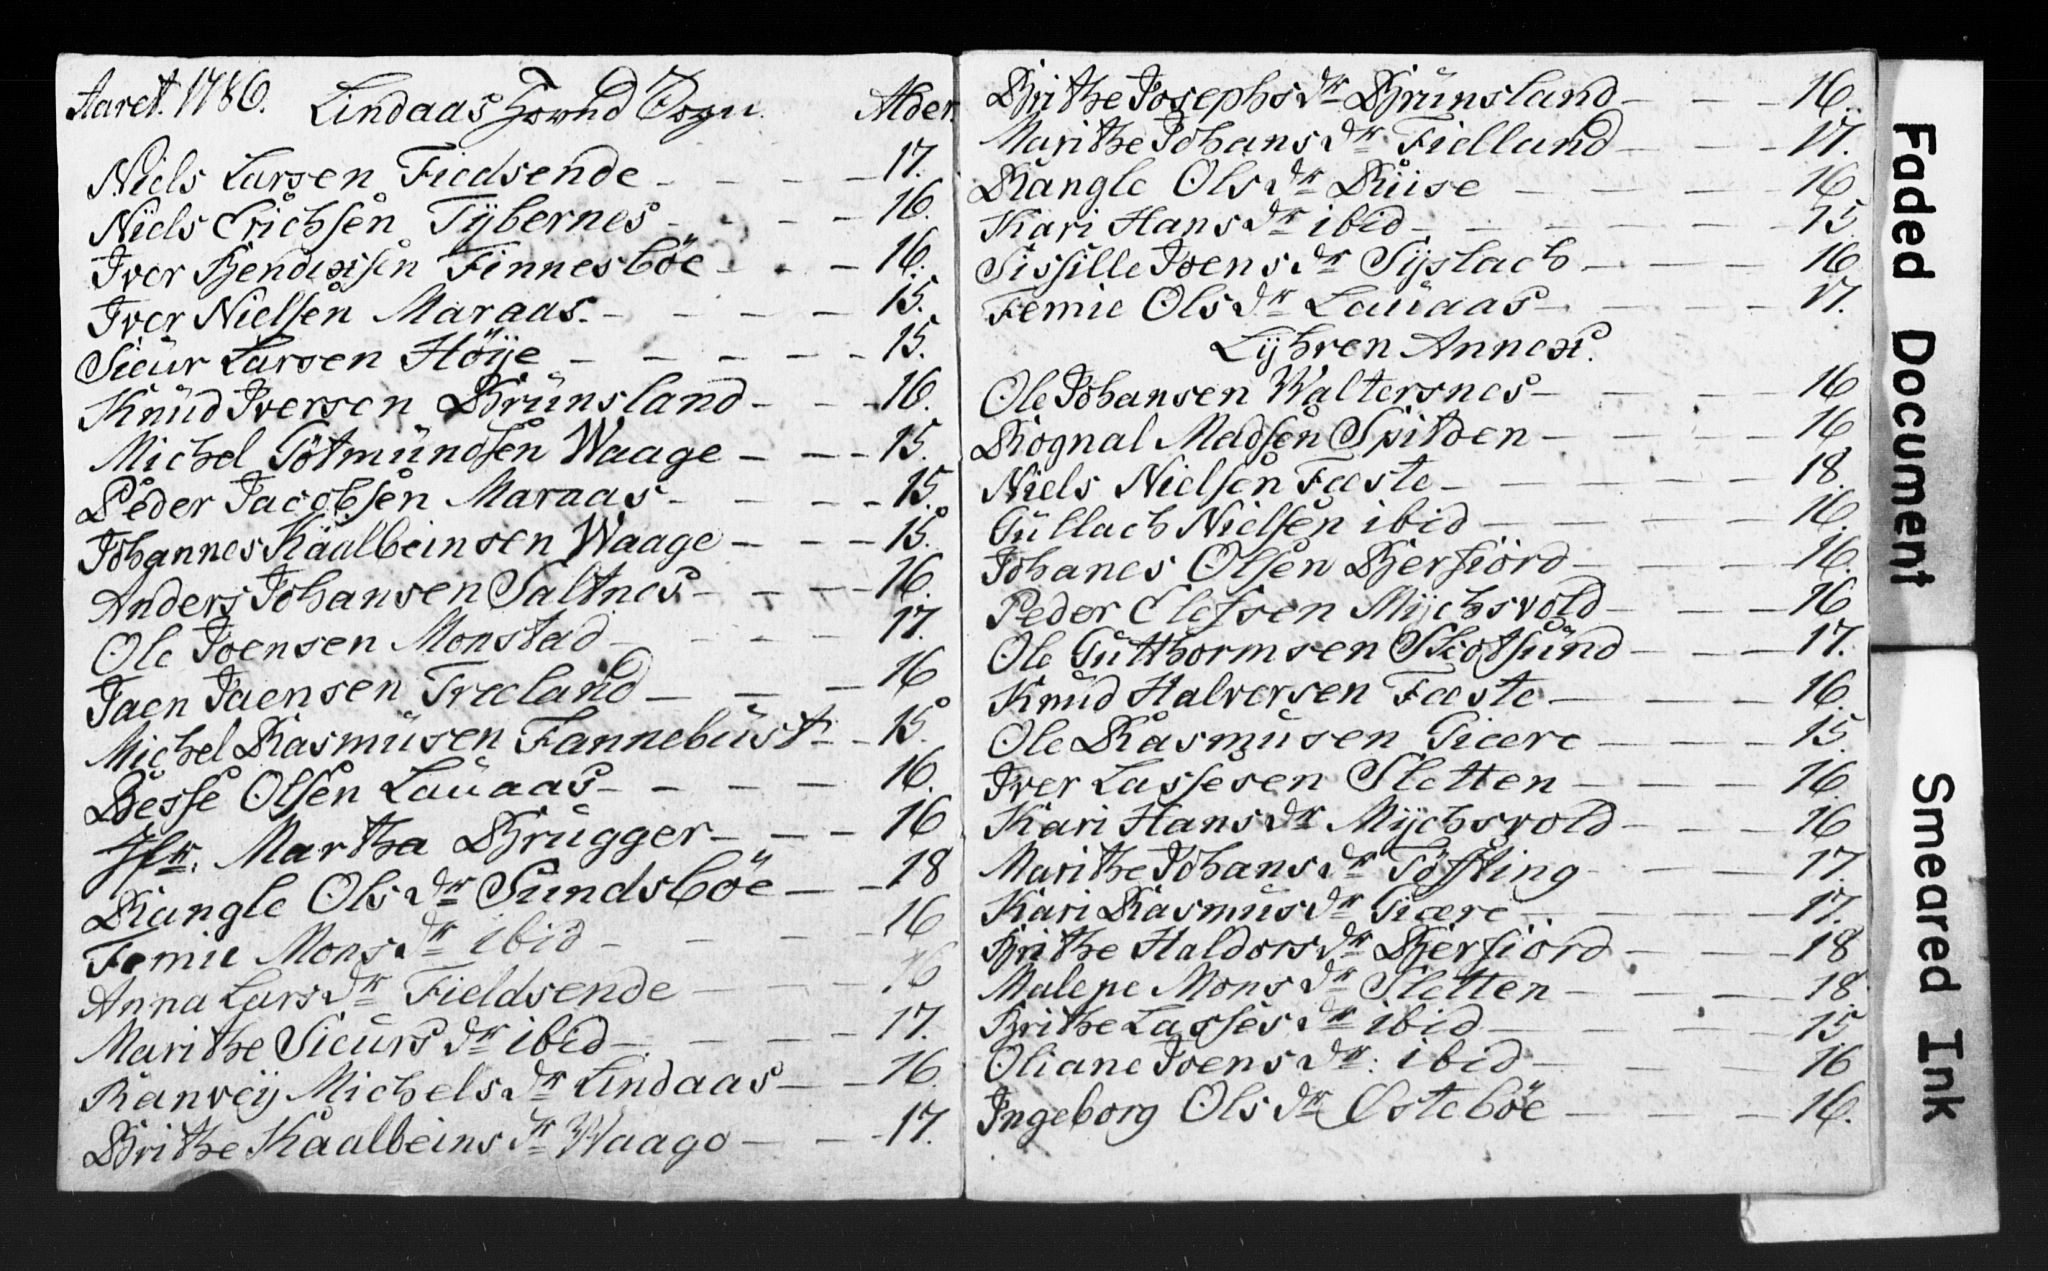 Aaret. 1786. Lindaas Hovud Sogn. Alder.
Niels Larsen Fiedsende 17.
Niels Erichsen Tÿbernes 16.
Iver Bendixsen Finnesböe 16.
Iver Nielsen Maraas. 15.
Sieur Larsen Höÿe 15.
Knud Iversen Brunsland 16.
Michel Götmundsen Waage 15.
Peder Jacobsen Maraas 15.
Johannes Kaalbeinsen Waage 15.
Anders Johansen Saltnes 16.
Ole Joensen Monstad 17.
Jaen Jaensen Treeland 16
Michel Rasmusen Fannebust 15.
Besse Olsen Lauaas 16.
Jfr. Martha Brugger 16
Rangle Ols dr Sundsböe 18
Femie Mons dr ibid 16
Anna Lars dr Fieldsende 16
Marithe Sieurs dr ibid 17.
Ranveÿ Michels dr Lindaas 16
Brithe Kaalbeins dr Waage 17.
Brithe Josephs dr Brunsland 16.
Marithe Johans dr Fielland 17.
Rangle Ols dr Riise 16
Kari Hans dr ibid 15
Sissille Joens dr Sÿslach 16
Femie Ols dr Lauaas 17.
Lÿhren Annex.
Ole Johansen Waltersnes 16
Rognal Madsen Spithen 16
Niels Nielsen Fæste 18.
Gullach Nielsen ibid 16.
Johanes Olsen Bierfiord 16.
Peder Elefsen Mÿchsvold 16
Ole Gutthormsen Skotsund 17.
Knud Halversen Fæste 16.
Ole Rasmusen Giære 15.
Iver Lassesen Sletten 16
Kari Hans dr Mÿchsvold 16
Marithe Johans dr Töffting 17.
Kari Rasmus dr Giære 17.
Brithe Haldors dr Bierfiord 18
Malene Mons dr Sletten 18.
Brithe Lasses dr ibid 15
Oliane Joens dr: ibid 16
Ingeborg Ols dr Osteböe 16.
Faded Document
Smeared Ink